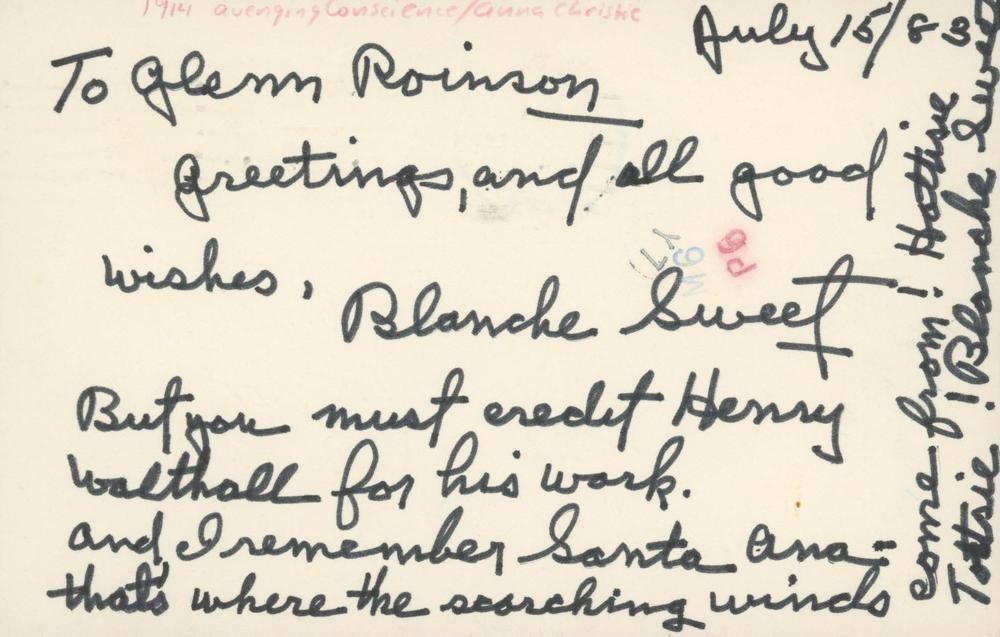 1914 avenging Conscience/Anna Christie
July 15/83
To Glenn Roinson
greetings, and all good
wishes,
Blanche Sweet
But you must credit Henry
Walthall for his work.
and I remember Santa Ana-
that's where the scorching winds
come from! Hattsie
Tottsie! Blanche Sweet
M6
P6